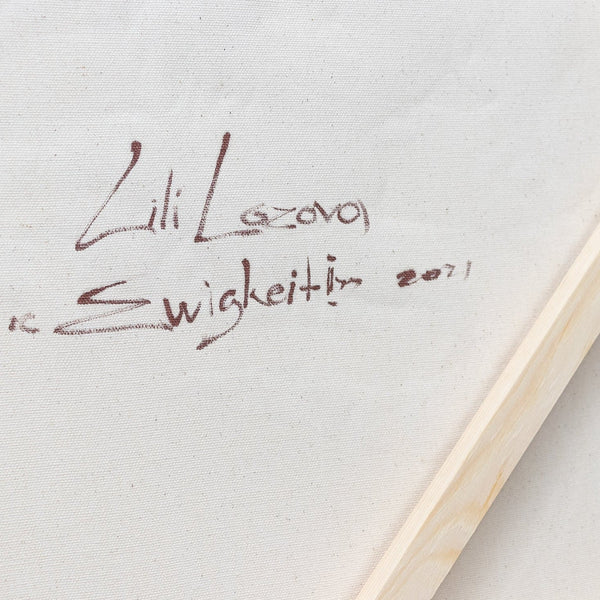 Lili Lazova
Ewigkeit im 2021